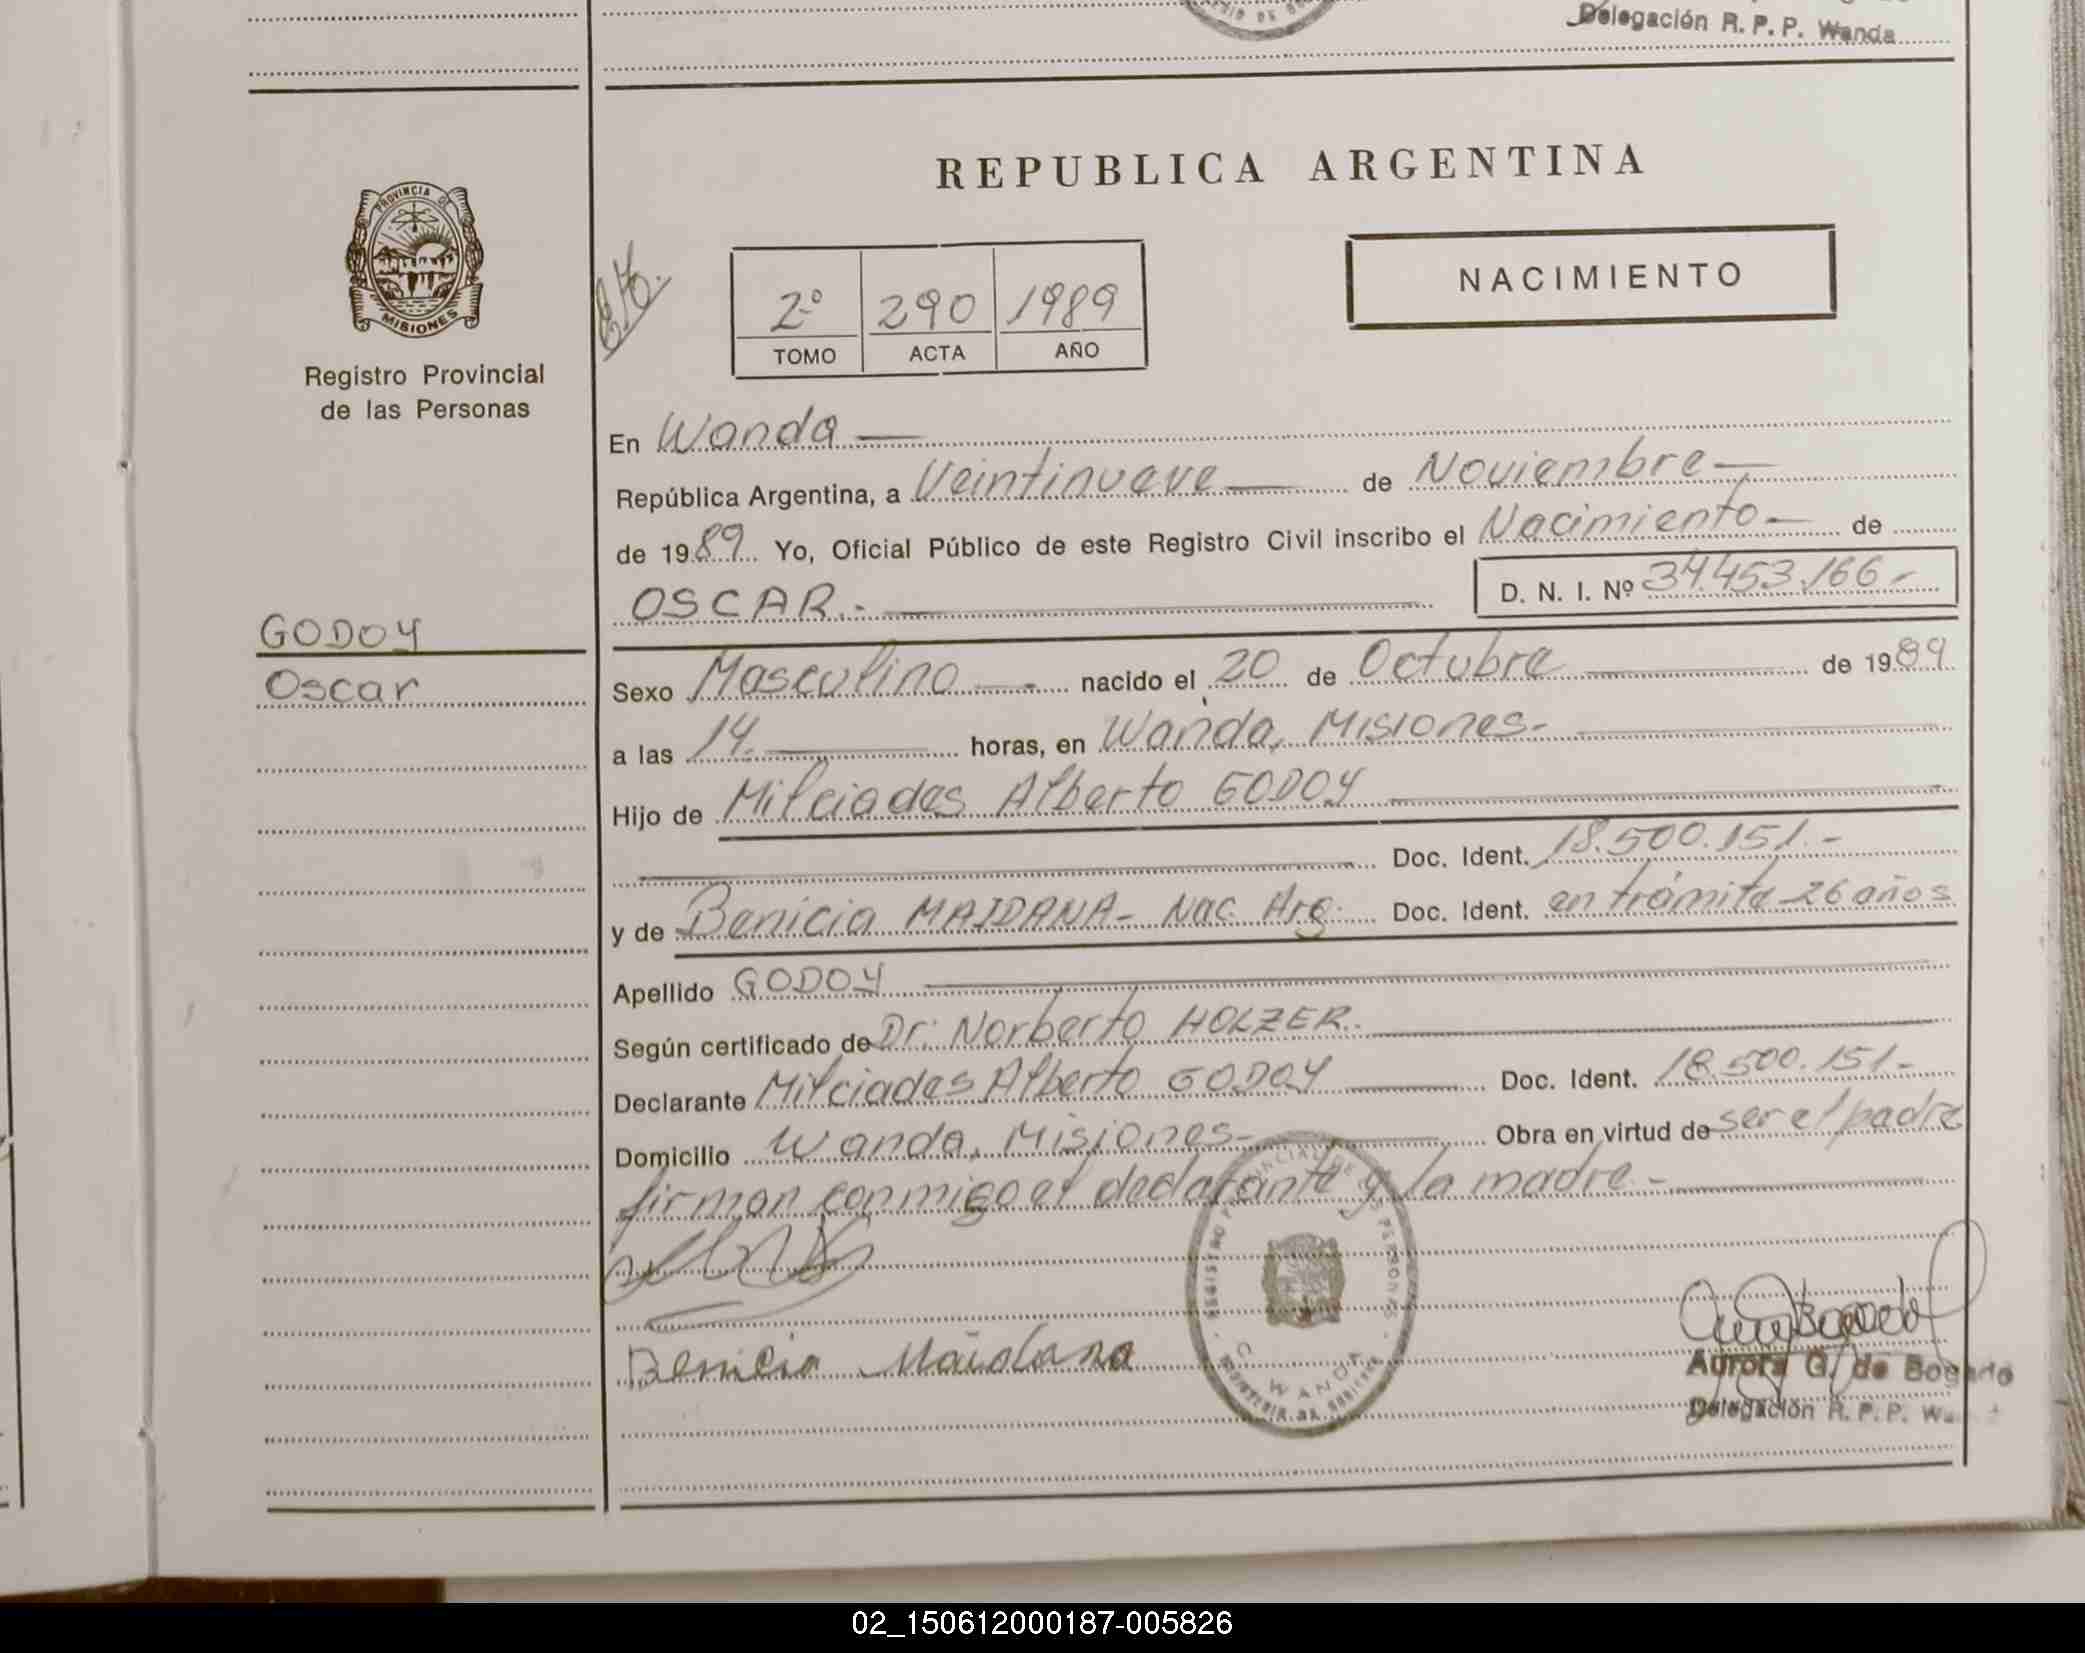 Delegación R. P. P. Wanda
REPUBLICA ARGENTINA
PROVINCIA DE
MISIONES
Registro Provincial
de las Personas
2º 290 1989
TOMO ACTA AÑO
NACIMIENTO
En Wanda
República Argentina, a Veintinueve de Noviembre
de 1989 Yo, Oficial Público de este Registro Civil inscribo el Nacimiento de
OSCAR.- D. N. I. Nº 34.453.166.-
GODOY
Oscar
Sexo Masculino nacido el 20 de Octubre de 1989
a las 14 horas, en Wanda, Misiones.-
Hijo de Milciades Alberto GODOY
Doc. Ident. 18.500.151.-
y de Benicia MAIDANA- Nac. Arg. Doc. Ident. en trámite 26 años
Apellido GODOY
Según certificado de Dr: Norberto HOLZER.
Declarante Milciades Alberto GODOY Doc. Ident. 18.500.151-
Domicilio Wanda, Misiones- Obra en virtud de ser el padre
firman conmigo el declarante y la madre.-
Benicia Maidana
REGISTRO PROVINCIAL DE LAS PERSONAS
WANDA
Aurora G. de Bogado
Delegación R. P. P.
02_150612000187-005826